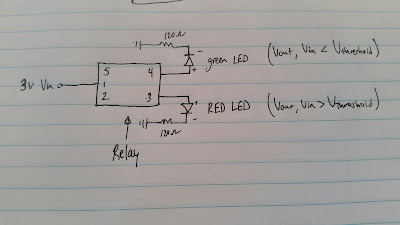 120Ω
-
green LED (Vout, Vin < Vthreshold)
+
3v Vin
5 4
1
2 3
+
RED LED (Vout, Vin > Vthreshold)
-
120Ω
Relay